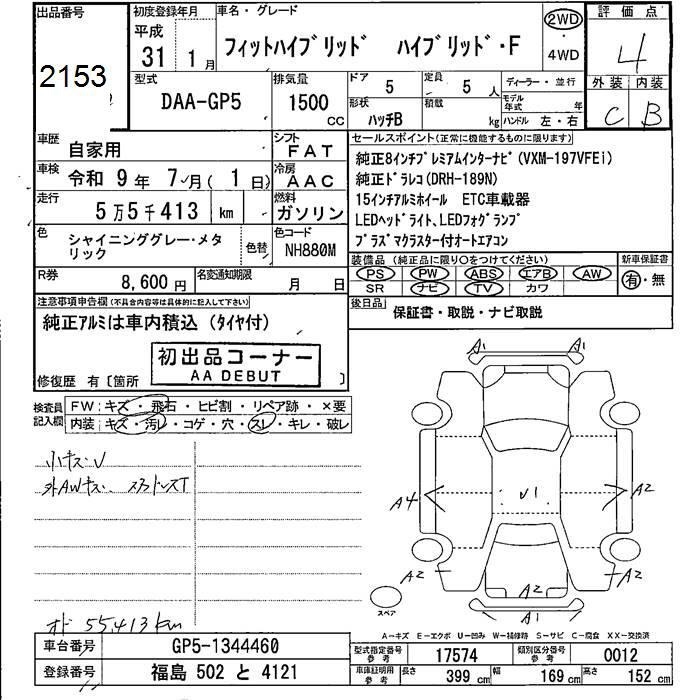 出品番号
2153
初度登録年月
平成
31年 1月
車名・グレード
フィットハイブリッド ハイブリッド・F
2WD
・
4WD
評価点
4
外装 内装
C B
型式
DAA-GP5
排気量
1500
CC
ドア 5
定員 5 人
形状 ハッチB
積載 kg
ディーラー・並行
モデル年式 年
ハンドル 左・右
車歴 自家用
シフト FAT
車検 令和 9年 7月( 1日)
冷房 AAC
走行 5万5千413 km
燃料 ガソリン
色 シャイニンググレー・メタリック
色替
色コード NH880M
R券 8,600円
名変通知期限 月 日
セールスポイント(正常に機能するものに限ります)
純正8インチプレミアムインターナビ(VXM-197VFEi)
純正ドラレコ(DRH-189N)
15インチアルミホイール ETC車載器
LEDヘッドライト、LEDフォグランプ
プラズマクラスター付オートエアコン
装備品(純正品に限り○をつけてください)
新車保証書
PS PW ABS エアB AW
有・無
SR ナビ TV カワ
後日品
保証書・取説・ナビ取説
注意事項申告欄(不具合内容等は具体的に記入して下さい)
純正アルミは車内積込 (タイヤ付)
初出品コーナー
AA DEBUT
修復歴 有〔箇所 〕
検査員記入欄
FW:キズ・飛石・ヒビ割・リペア跡・×要
内装:キズ・汚レ・コゲ・穴・スレ・キレ・破レ
小キズ・V
外AWキズ.
オド 55,413km
A1 A1
A4
V1
A2
A2 A2 A2
A1
スペア
A-キズ E-エクボ U-凹み W-補修跡 S-サビ C-腐食 XX-交換済
車台番号 GP5-1344460
登録番号 福島 502 と 4121
型式指定番号 参考 17574
類別区分番号 参考 0012
車庫証明用 参考
長さ 399 cm
幅 169 cm
高さ 152 cm